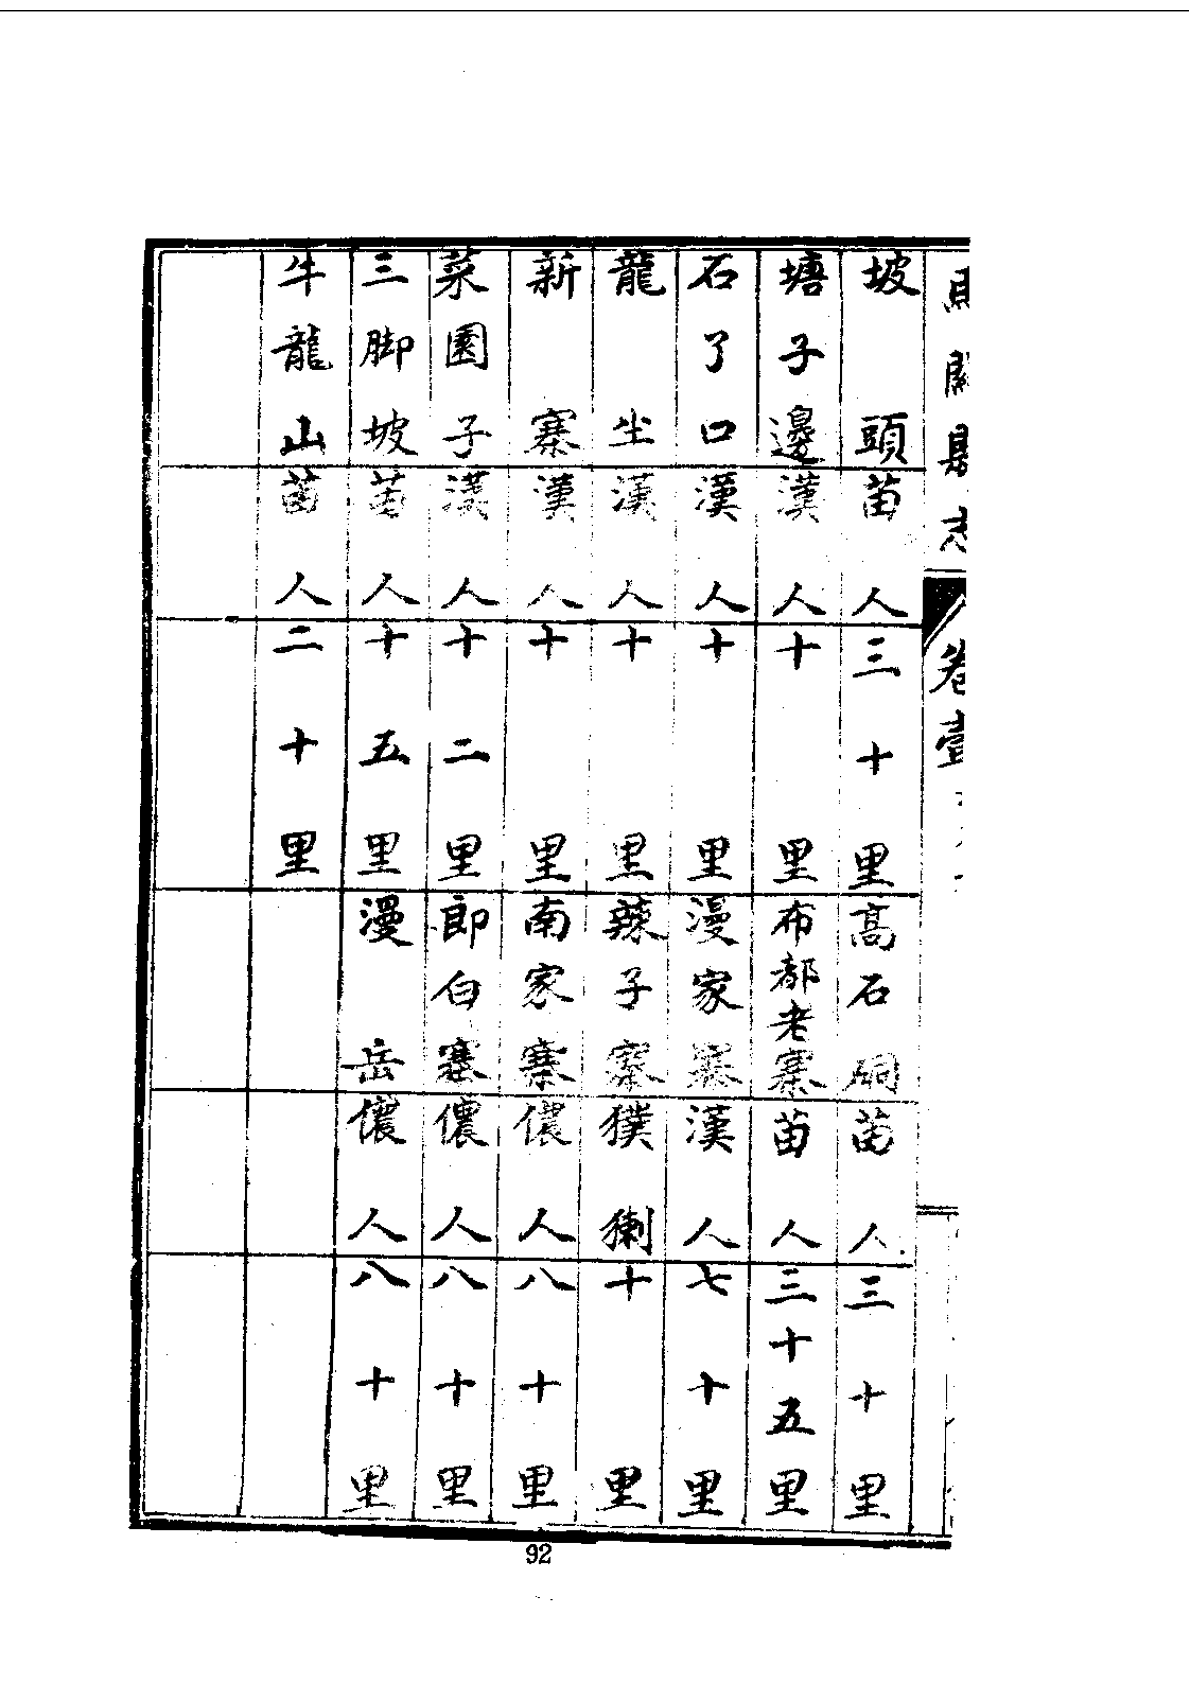 馬關縣志 卷壹
坡頭 苗人 三十里 高石硐 苗人 三十里
塘子邊 漢人 十里 布都老寨 苗人 三十五里
石了口 漢人 十里 漫家寨 漢人 七十里
龍坐 漢人 十里 辣子寨 獛喇 十里
新寨 漢人 十里 南家寨 儂人 八十里
菜園子 漢人 十二里 郎白寨 儂人 八十里
三脚坡 苗人 十五里 漫岳 儂人 八十里
牛龍山 苗人 二十里
92